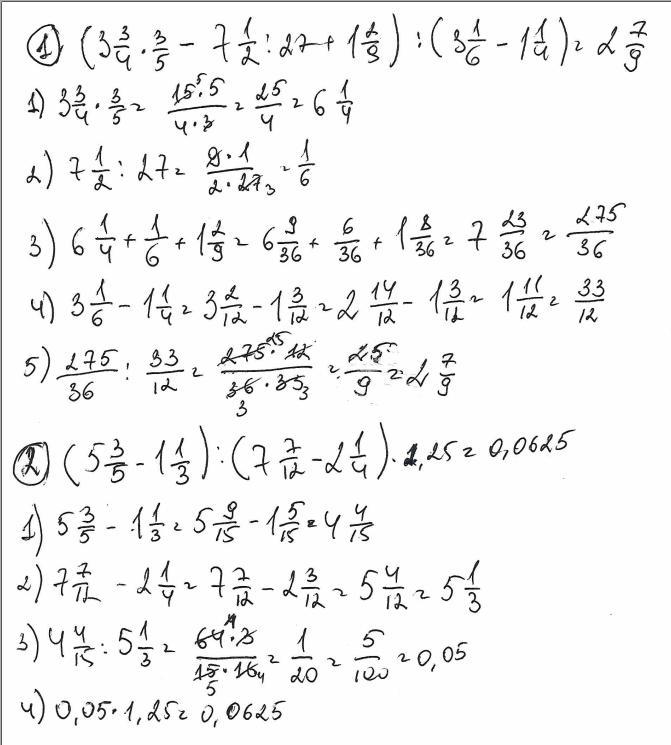 1) (3 3/4 · 3/5 − 7 1/2 : 27 + 1 2/9) : (3 1/6 − 1 1/4) = 2 7/9
1) 3 3/4 · 3/5 = 15·5/4·3 = 25/4 = 6 1/4
2) 7 1/2 : 27 = 9·1/2·27 3 = 1/6
3) 6 1/4 + 1/6 + 1 2/9 = 6 9/36 + 6/36 + 1 8/36 = 7 23/36 = 275/36
4) 3 1/6 − 1 1/4 = 3 2/12 − 1 3/12 = 2 14/12 − 1 3/12 = 1 11/12 = 33/12
5) 275/36 : 33/12 = 275 25 · 12/36 3 · 33 3 = 25/9 = 2 7/9
2) (5 3/5 − 1 1/3) : (7 7/12 − 2 1/4) · 1,25 = 0,0625
1) 5 3/5 − 1 1/3 = 5 9/15 − 1 5/15 = 4 4/15
2) 7 7/12 − 2 1/4 = 7 7/12 − 2 3/12 = 5 4/12 = 5 1/3
3) 4 4/15 : 5 1/3 = 64 4 · 3/15 5 · 16 4 = 1/20 = 5/100 = 0,05
4) 0,05 · 1,25 = 0,0625